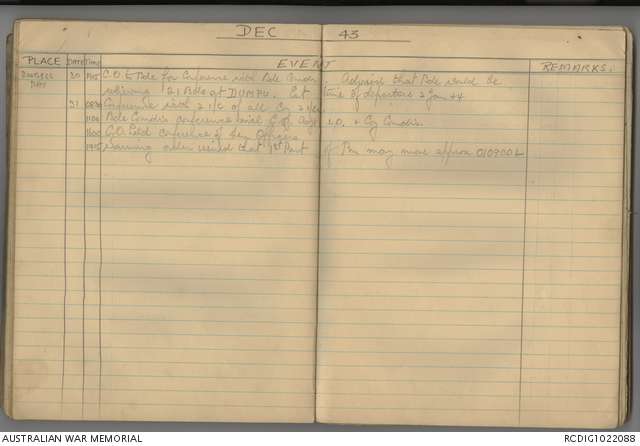 DEC 43
PLACE DATE Time EVENT REMARKS.
30 1915 C.O. to Bde for Conference with Bde Comdr. Advised that Bde would be
relieving 21 Bde at DUMPU. Est time of departure 2 Jan 44
31 Conference with 2 i/c of all Coy
1100 Bde Comdrs conference with C.O. & Coy Comdrs.
1600 C.O. held conference of Offrs
Warning order issued that 1st Part of Bn may move approx 010900L
AUSTRALIAN WAR MEMORIAL
RCDIG1022088